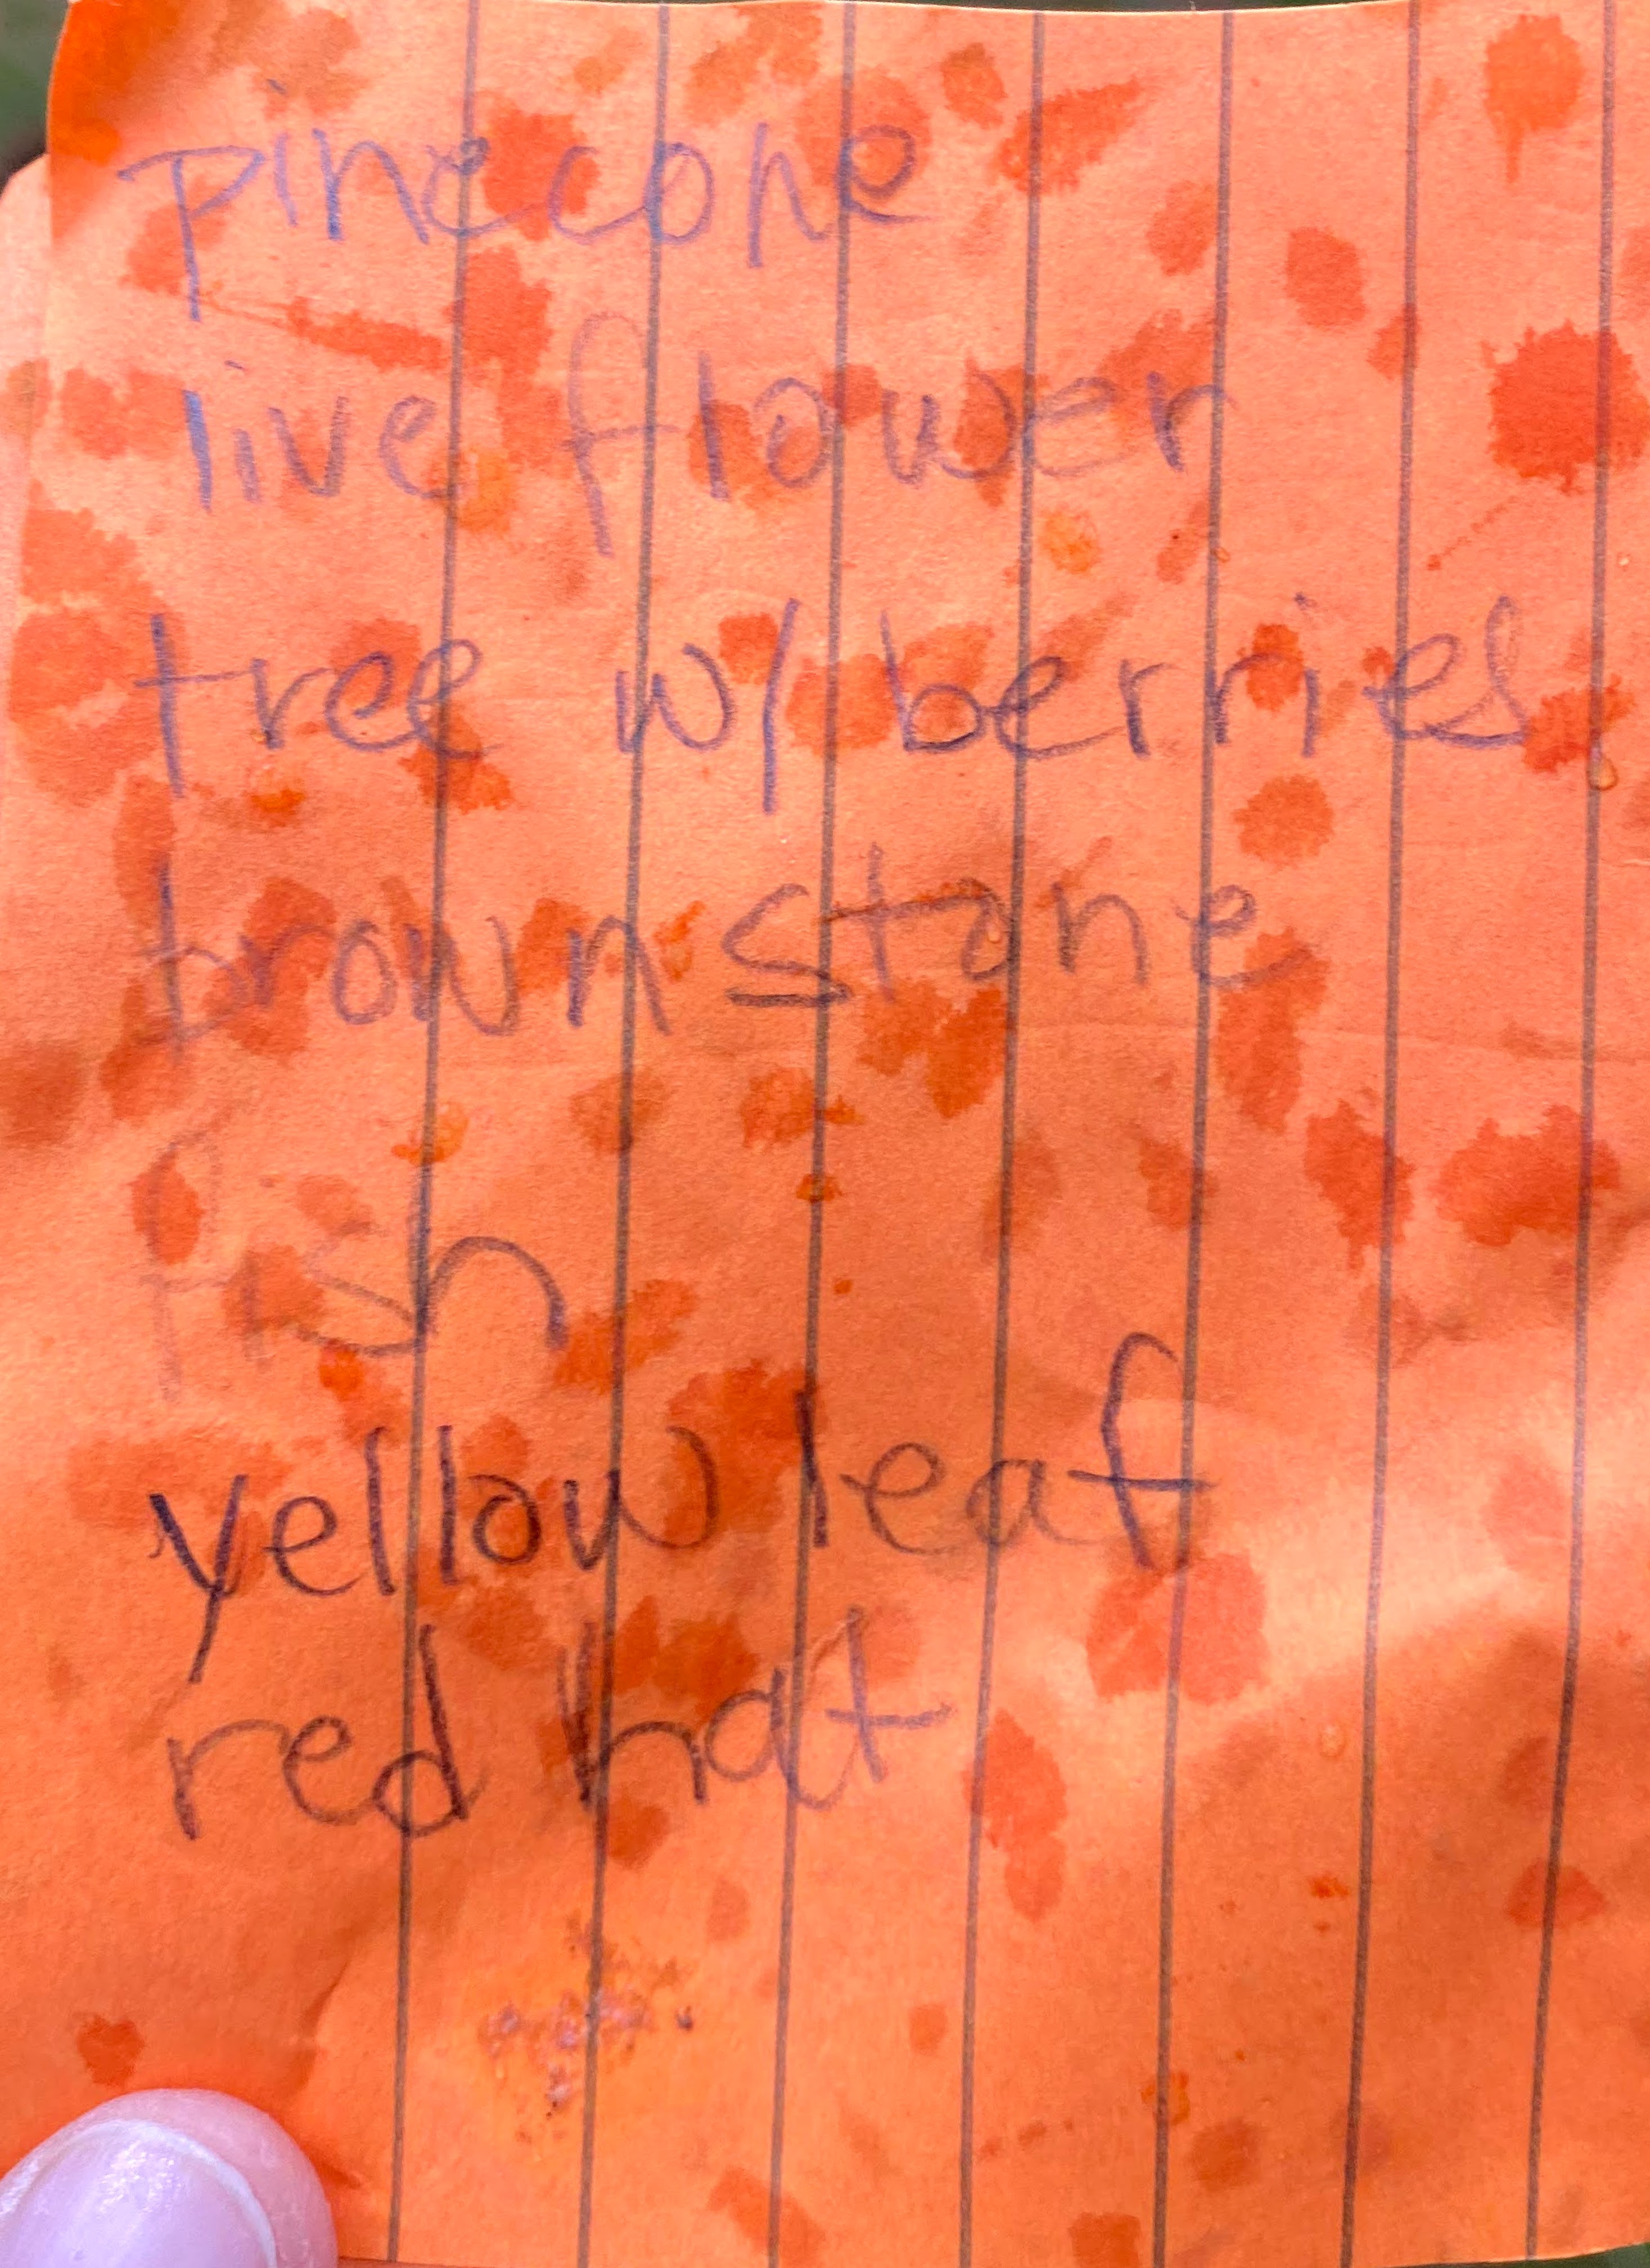 pinecone
live flower
tree w/ berries
brown stone
fish
yellow leaf
red hat